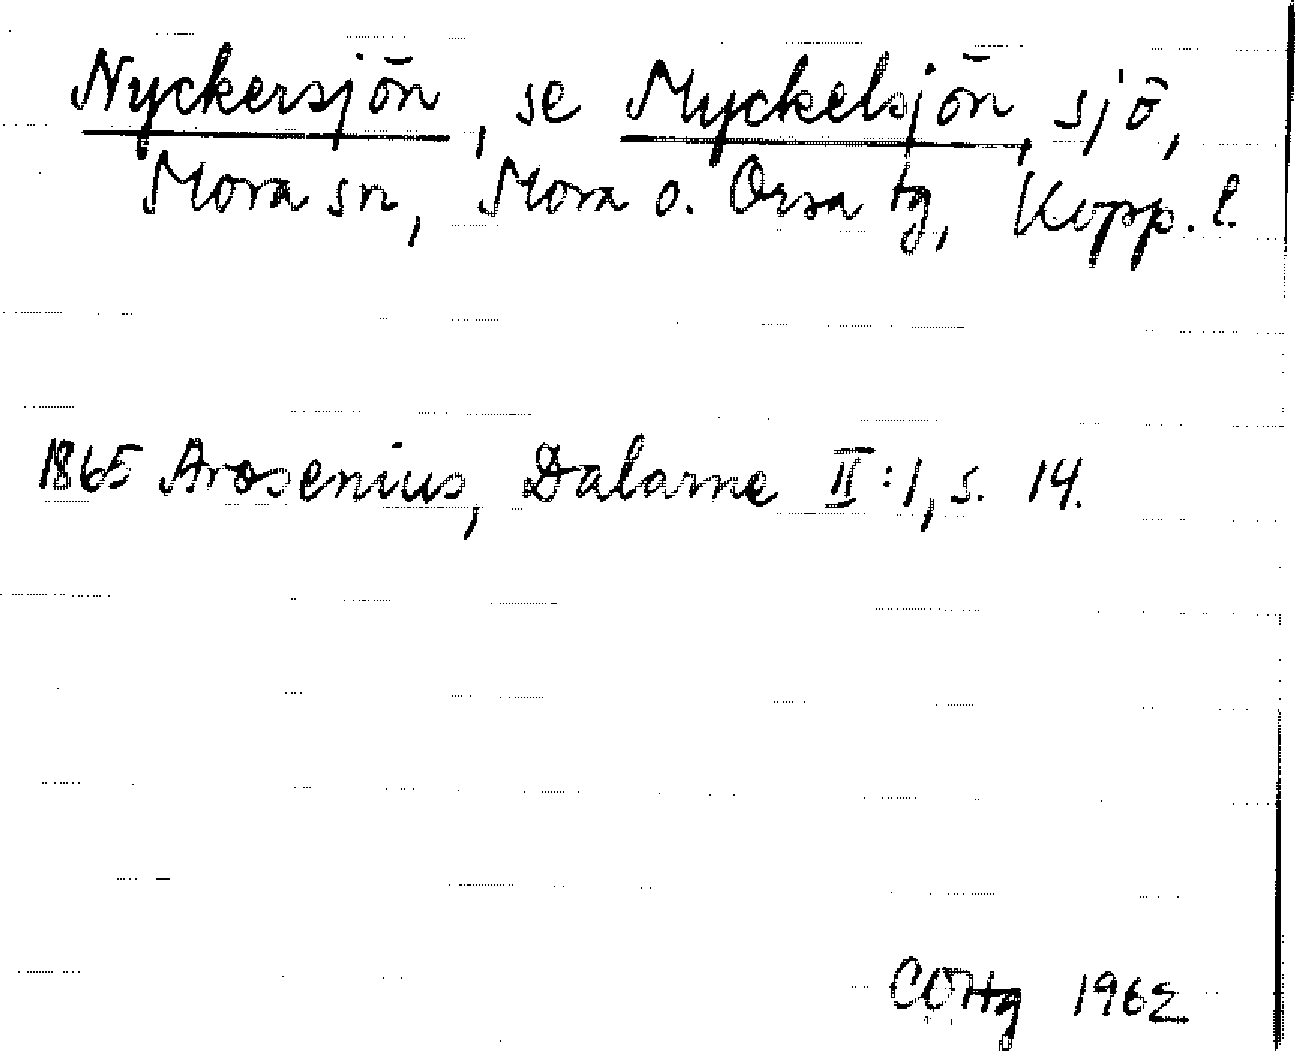 Nyckersjön, se Myckelsjön, sjö,
Mora sn, Mora o. Orsa tg, Kopp. l.
1865 Arosenius, Dalarne II:1, s. 14.
COHg 1962